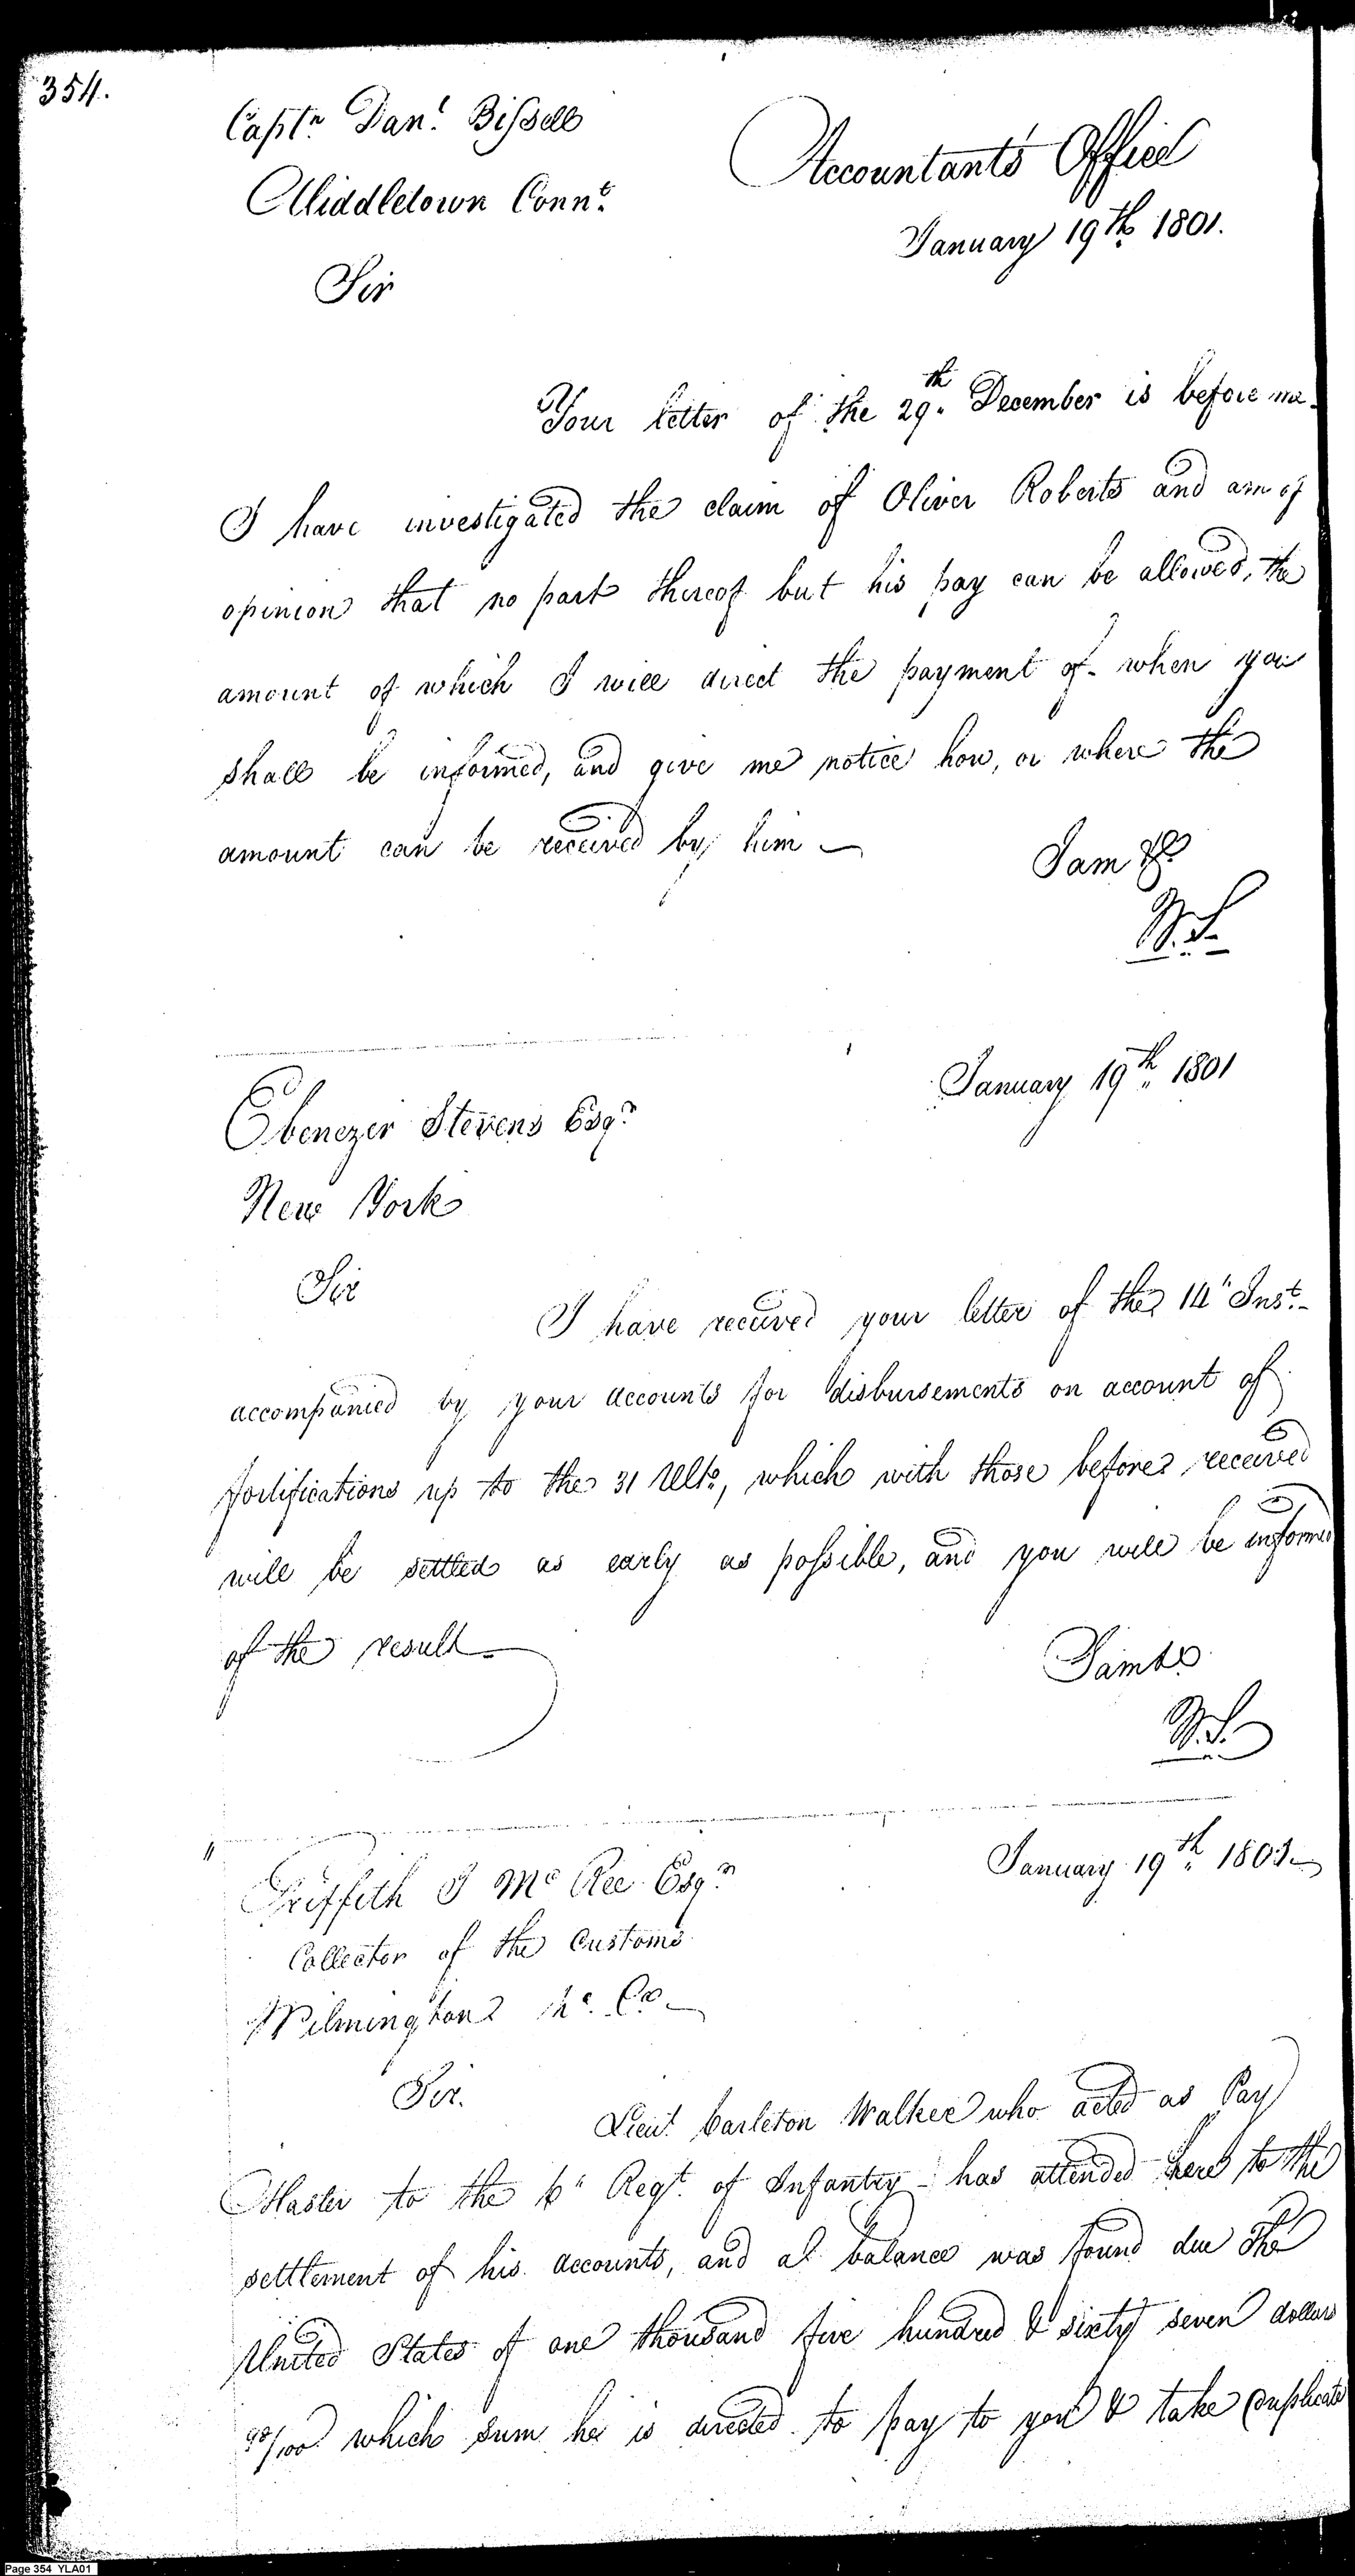 354.
Captn. Danl. Bissell
Accountant's Office
Middletown Connt.
January 19th. 1801.
Sir
Your letter of the 29th. December is before me.
I have investigated the claim of Oliver Roberts and am of
opinion that no part thereof but his pay can be allowed, the
amount of which I will direct the payment of - when you
shall be informed, and give me notice how, or where the
amount can be received by him —
I am &c.
W.S.
January 19th. 1801
Ebenezer Stevens Esqr.
New York
Sir
I have received your letter of the 14" Inst. -
accompanied by your accounts for disbursements on account of
fortifications up to the 31 Ulto, which with those before received
will be settled as early as possible, and you will be informed
of the result —
I am &c
W.S.
January 19th. 1801 —
Griffith J McRee Esqr.
Collector of the Customs
Wilmington No. Co —
Sir.
Lieut. Carleton Walker who acted as Pay
Master to the 6" Regt. of Infantry - has attended here to the
settlement of his accounts, and a balance was found due The
United States of one thousand five hundred & sixty seven dollars
/100 which sum he is directed to pay to you & take duplicate
Page 354 YLA01